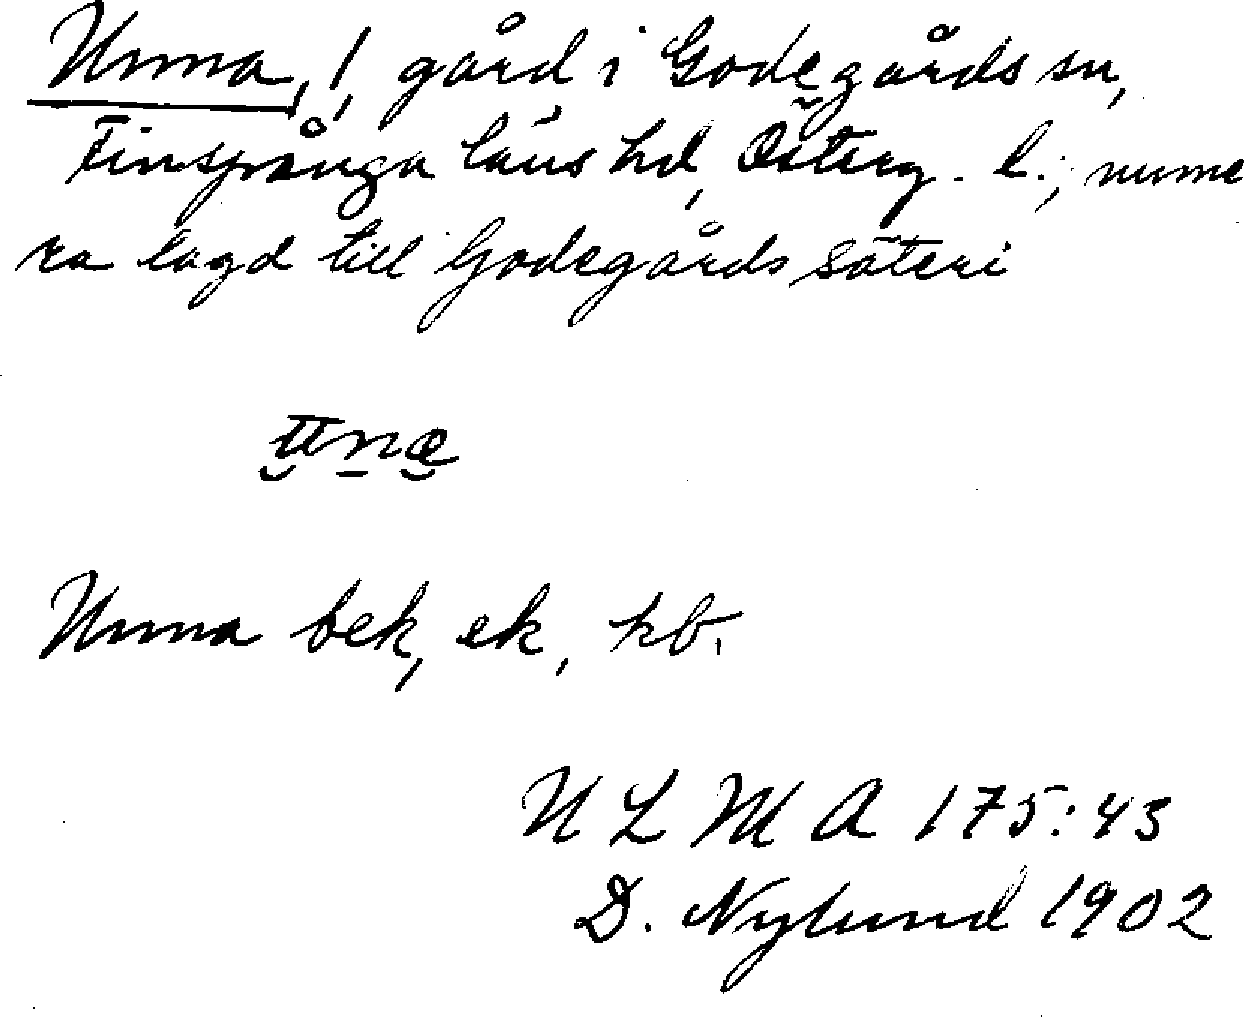 Unna, !, gård i Godegårds sn,
Finspånga läns hd, Österg. l.; nume
ra lagd till Godegårds säteri
Unna bek, ek, kb.
ULMA 175:43
D. Nylund 1902